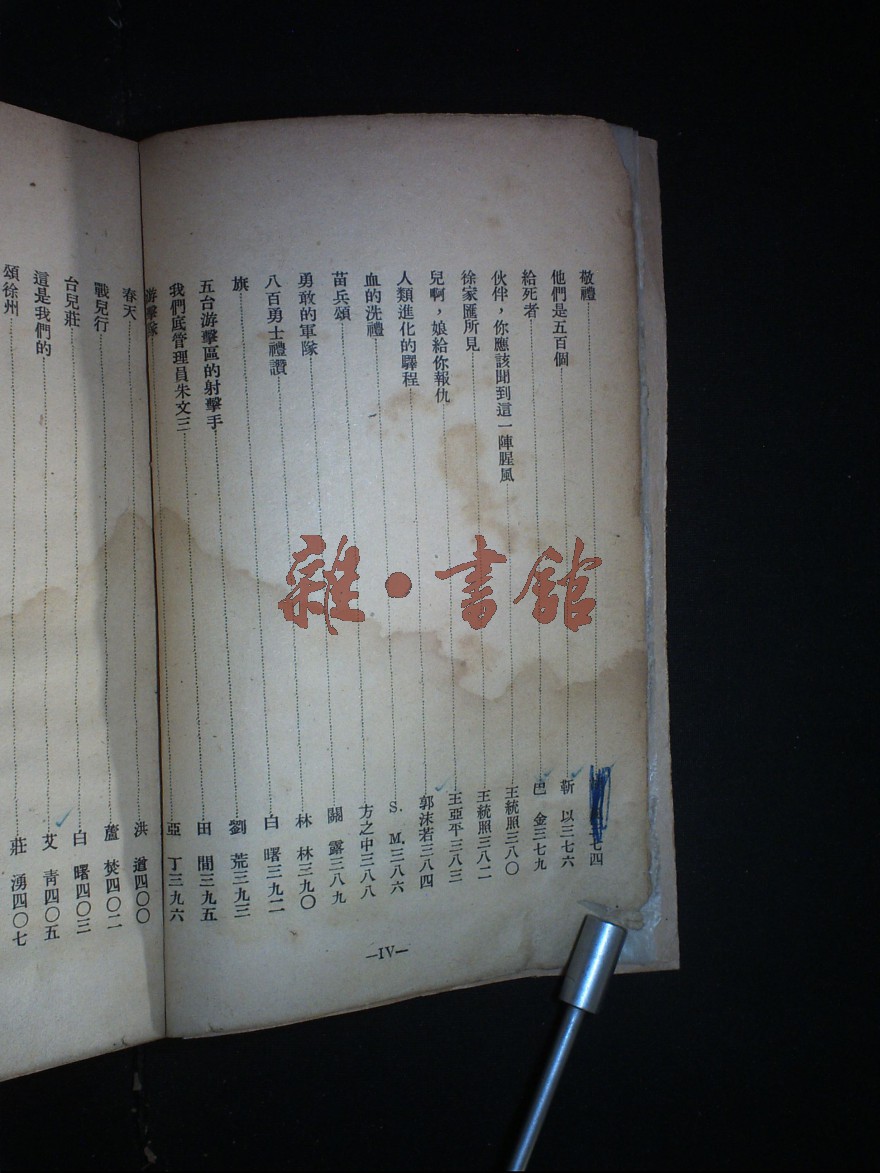 敬禮……七四
他們是五百個……靳 以三七六
給死者……巴 金三七九
伙伴，你應該聞到這一陣腥風……王統照三八〇
徐家匯所見……王統照三八二
兒啊，娘給你報仇……王亞平三八三
人類進化的驛程……郭沫若三八四
血的洗禮……S. M.三八六
苗兵頌……方之中三八八
勇敢的軍隊……關 露三八九
八百勇士禮讚……林 林三九〇
旗……白 曙三九二
五台游擊區的射擊手……劉 荒三九三
我們底管理員朱文三……田 間三九五
游擊隊……亞 丁三九六
春天……洪 遒四〇〇
戰兒行……蘆 焚四〇二
台兒莊……白 曙四〇三
這是我們的……艾 青四〇五
頌徐州……莊 湧四〇七
—IV—
雜·書館